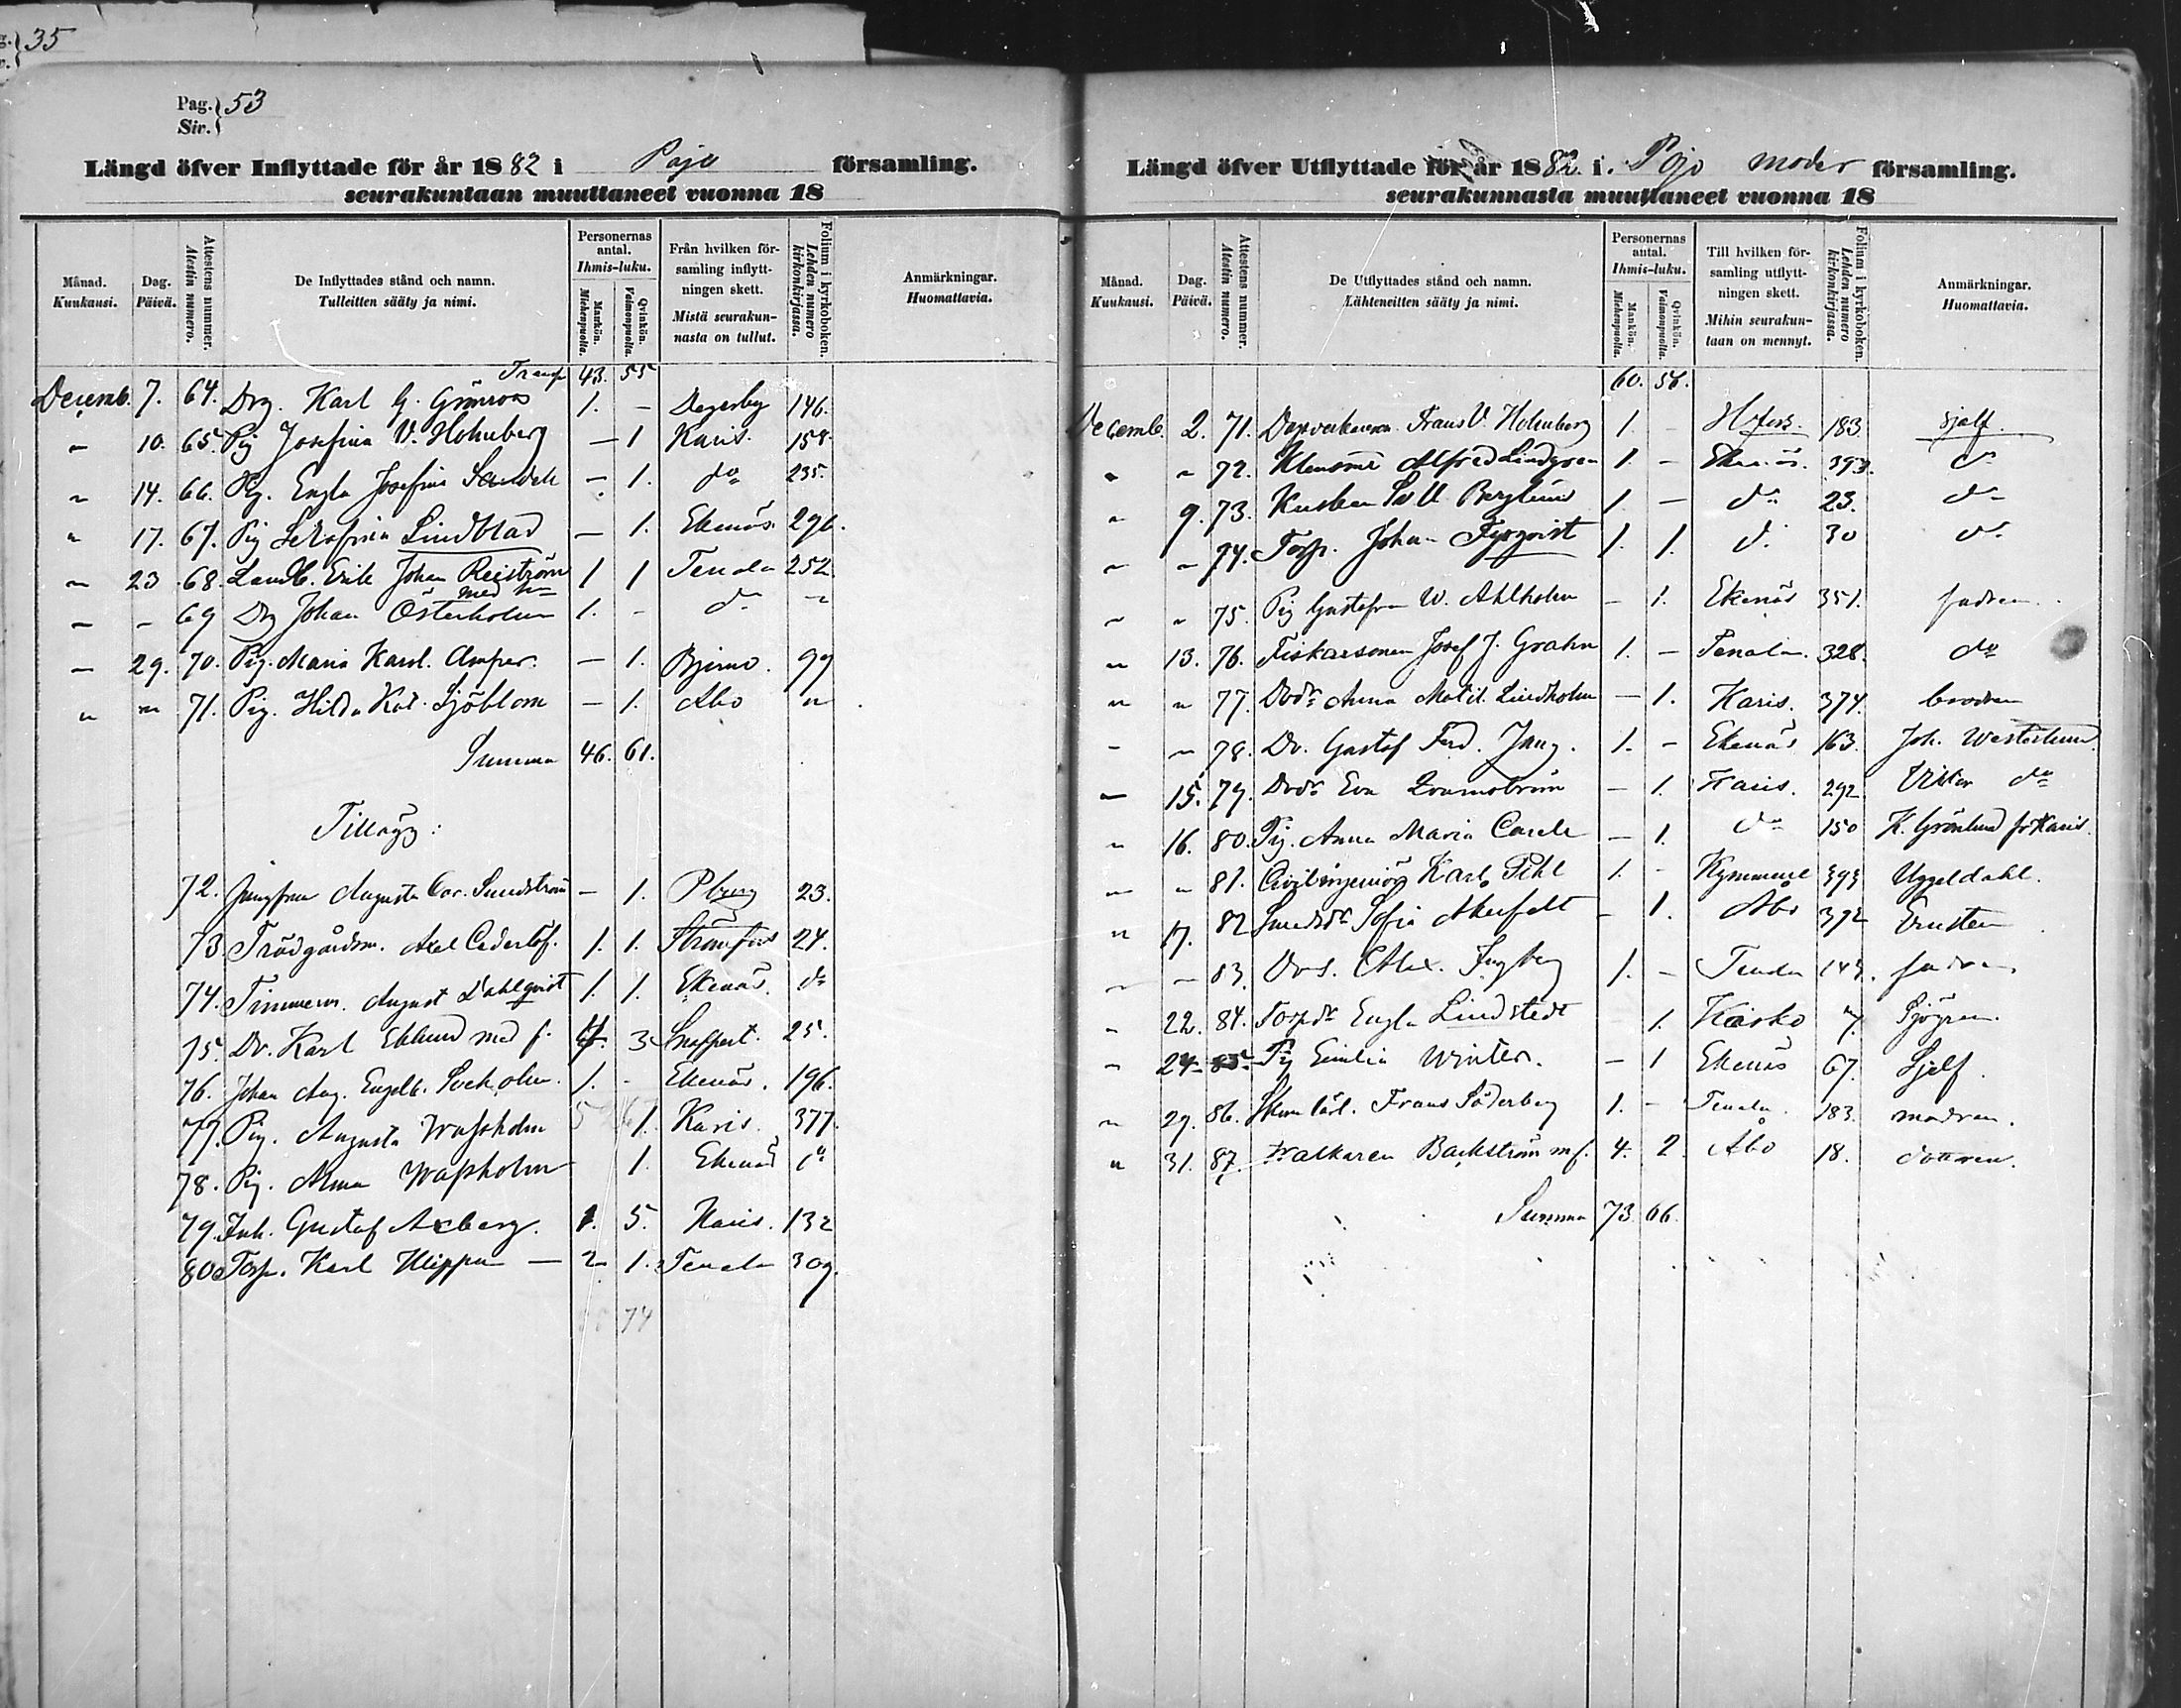 35
Pag. 53
Siv.
Längd öfver Inflyttade för år 1882 i Pojo församling.
seurakuntaan muuttaneet vuonna 18
Månad. Kuukausi. Dag. Päivä. Attestens nummer. Atestin numero. De Inflyttades stånd och namn. Tulleitten sääty ja nimi. Personernas antal. Ihmis-luku. Mankön. Miehenpuolta. Qvinkön. Vaimonpuolta. Från hvilken församling inflyttningen skett. Mistä seurakunnasta on tullut. Folium i kyrkoboken. Lehden numero kirkonkirjassa. Anmärkningar. Huomattavia.
Transp 43. 55
Decemb. 7. 64. Drg. Karl G. Grönroos 1. - Degerby 146.
" 10. 65. Pig Josefina V. Holmberg - 1 Karis. 158.
" 14. 66. Pig. Engla Josefina Sandell - 1. do 235.
" 17. 67. Pig Serafina Lindblad - 1. Ekenäs 296.
" 23 68. Landb. Erik Johan Reiström med h. 1 1 Tenala 252.
" - 69 Drg Johan Österholm 1. - do "
- 29. 70. Pig. Maria Karol. Amper. - 1. Bjerno. 99
" " 71. Pig. Hilda Kat. Sjöblom - 1. Abo "
Summa 46. 61.
Tillägg:
72. Jungfrun Augusta Car. Sundström - 1. Pburg 23.
73. Trädgårdsm. Axel Cederlöf. 1. 1. Strömfors 24.
74. Timmerm. August Dahlqvist 1. 1. Ekenäs. do
75. Dr. Karl Eklund med f. 4. 3 Snappert. 25.
76. Johan Aug. Engelb. 1. - Ekenäs. 196.
77. Pig. Augusta Wapsholm 1. Karis. 377.
78. Pig. Alma Wapsholm 1. Ekenäs
79. Inh. Gustaf Axberg. 1. 5. Karis. 132
80. Torp. Karl Klippen - 2 1. Tenala 309.
74
Längd öfver Utflyttade för år 1882. i. Pojo moder församling.
seurakunnasta muuttaneet vuonna 18
Månad. Kuukausi. Dag. Päivä. Attestens nummer. Atestin numero. De Utflyttades stånd och namn. Lähteneitten sääty ja nimi. Personernas antal. Ihmis-luku. Mankön. Miehenpuolta. Qvinkön. Vaimonpuolta. Till hvilken församling utflyttningen skett. Mihin seurakuntaan on mennyt. Folium i kyrkoboken. Lehden numero kirkonkirjassa. Anmärkningar. Huomattavia.
60. 56.
Decemb. 2. 71. Frans V. Holmberg 1. - H:fors. 183. sjelf.
" " 72. Alfred Lindgren 1. - Ekenäs. 393. do
" 9. 73. Kusken Berglund 1. - do 23. do
" " 74. Torp. Johan Fyrqvist 1. 1. do 30 do
" " 75. Pig Gustafva W. Ahlholm - 1. Ekenäs 351. fadren.
" 13. 76. Fiskarsonen Josef J. Grahn 1. - Tenala. 328. do
" " 77. Dodr Anna Matil. Lindholm - 1. Karis. 374. brodren
- " 78. Dr. Gustaf Ferd. Jung. 1. - Ekenäs 163. Joh. Westerlund.
- 15. 79. Dodr Eva - 1. Karis. 292. Viktor do
" 16. 80. Pig. Anna Maria - 1. do 150 K. Grönlund fr Karis.
" " 81. Civilingeniör Karl Pihl 1. - Kymmene 393 Uggeldahl.
" 17. 82 Smedsdr Sofia Åkerfelt - 1. Åbo 392
" - 83. Alex. Fagberg 1. - Tenala 149. fadren
" 22. 84. Torpdr Engla Lindstedt 1. Kasko 7. Sjögren.
" 24. 85. Pig Emilia Winter. - 1 Ekenäs 67. Sjelf.
" 29. 86. Frans Söderberg 1. - Tenala. 183. modren.
" 31. 87. Backström m f. 4. 2. Åbo 18. dottren.
Summa 73. 66.